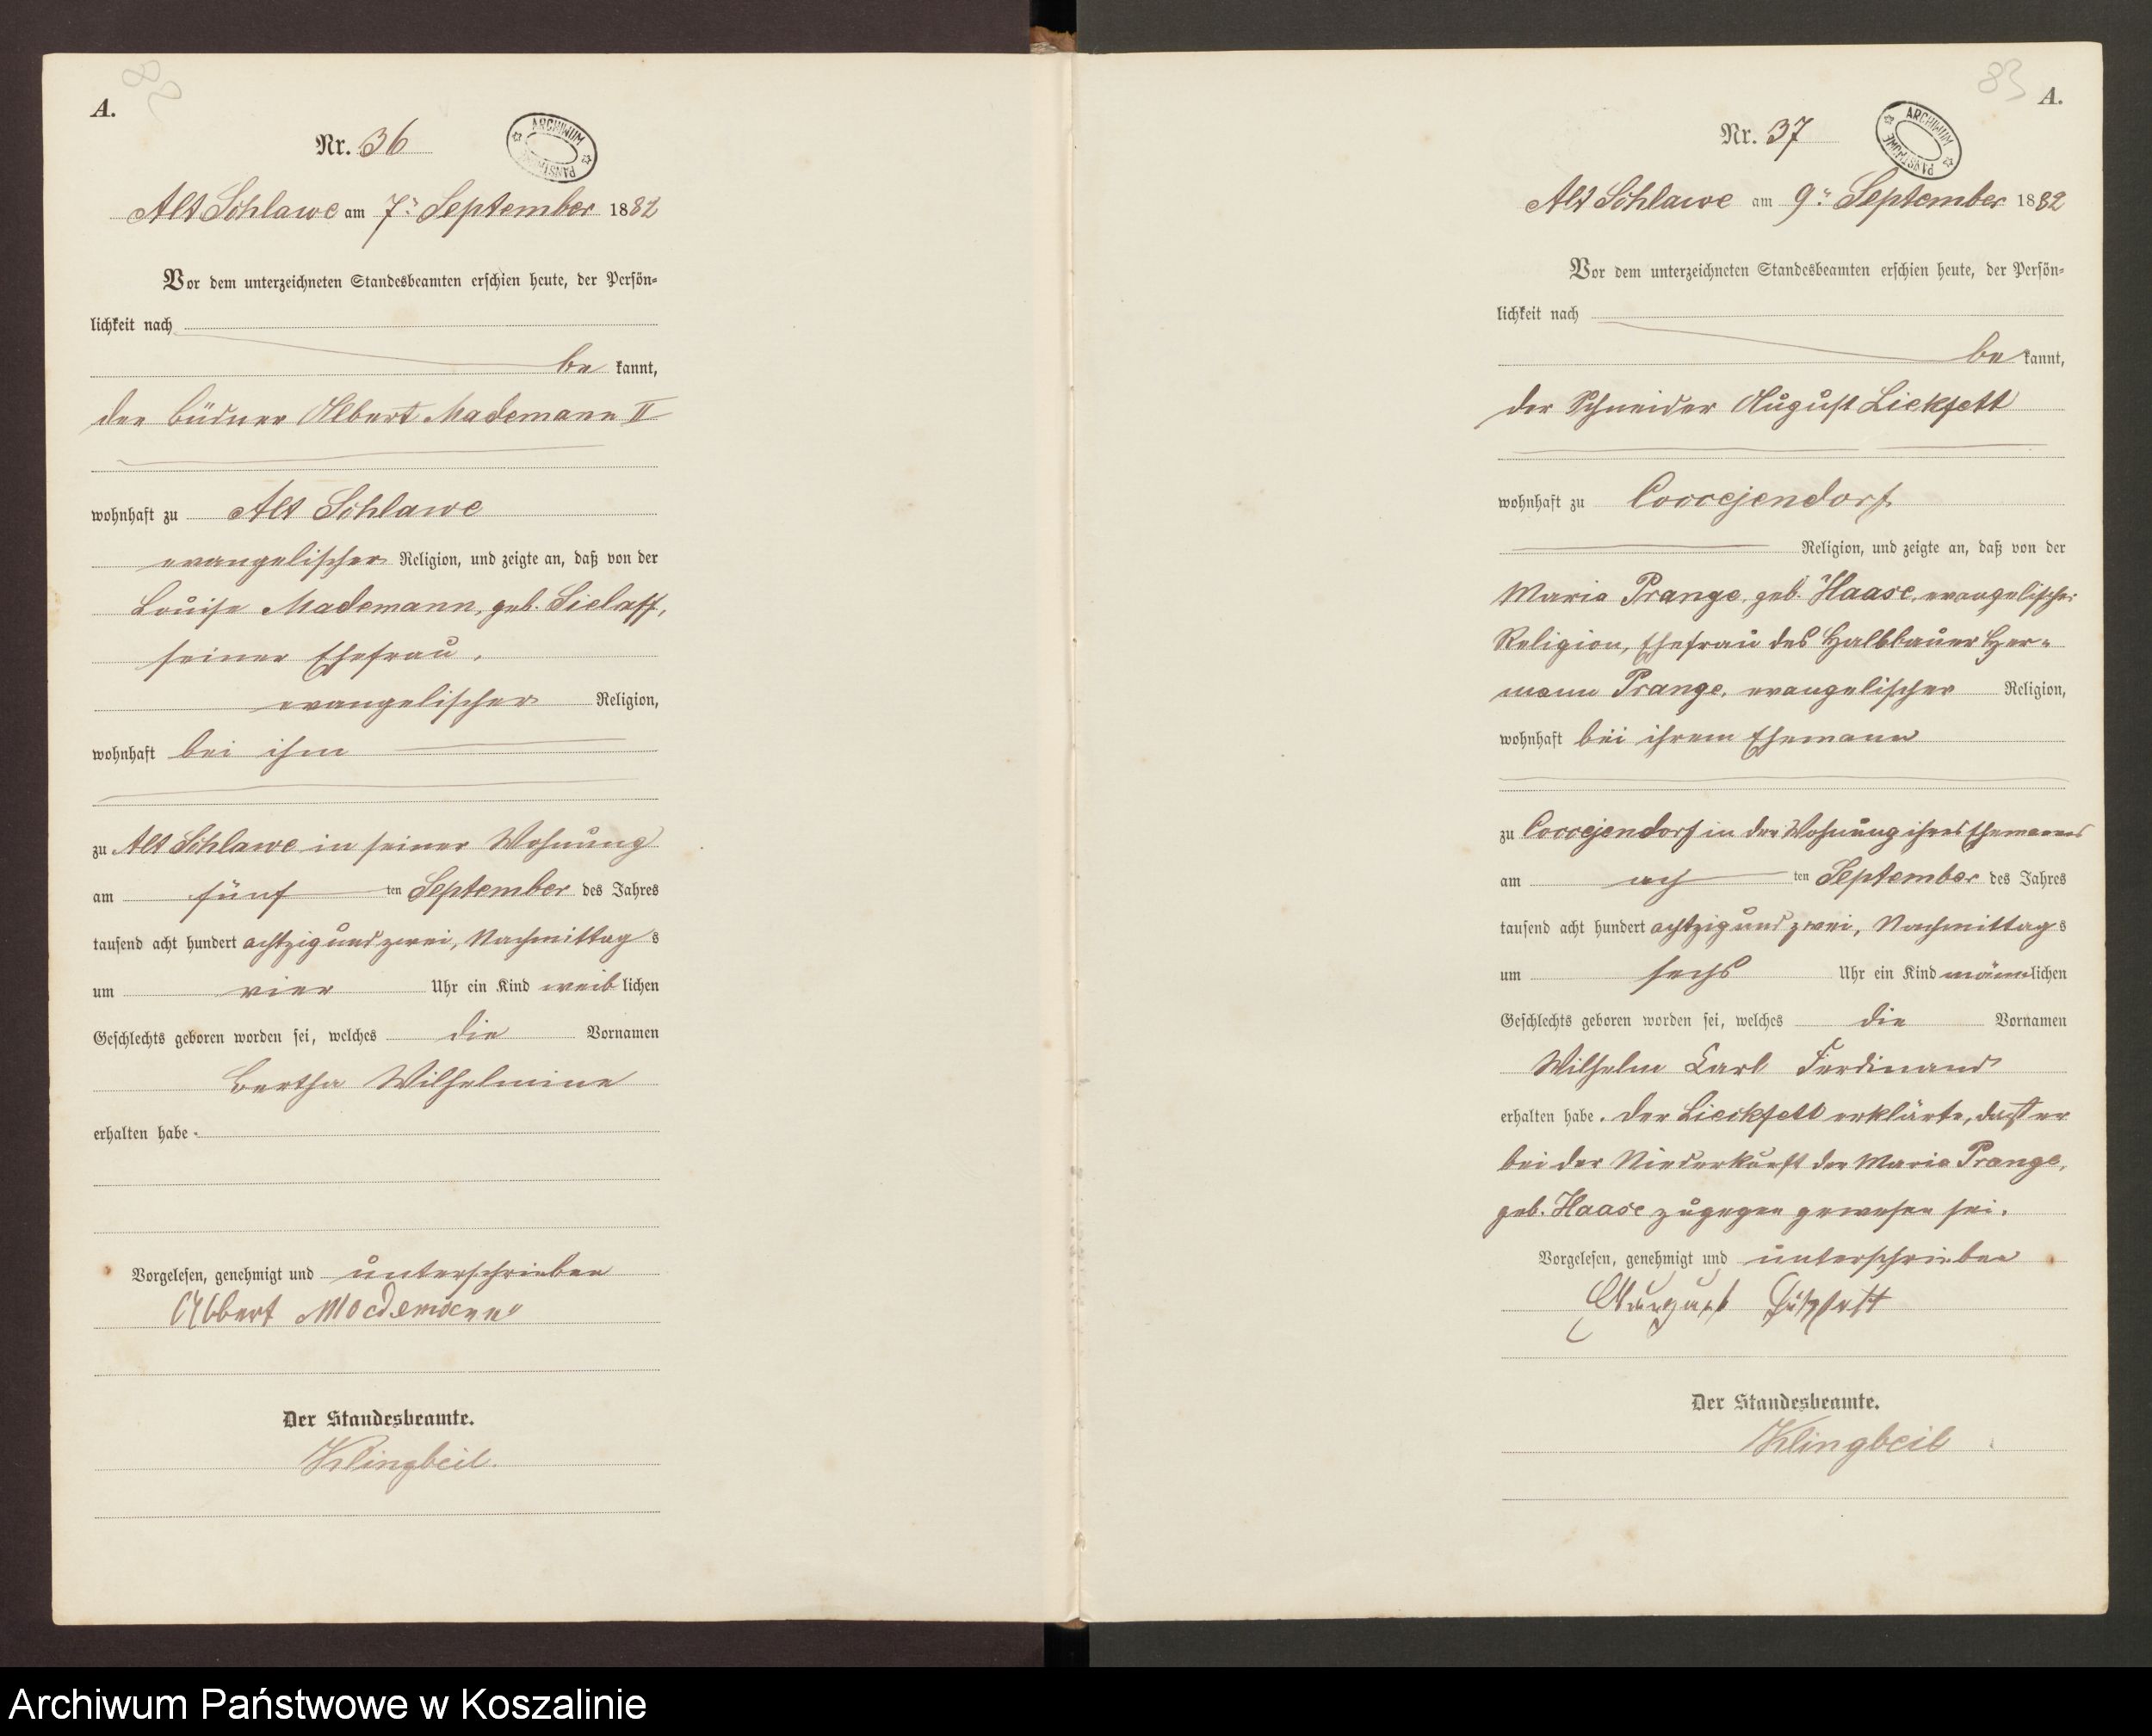 82
A.
Nr. 36
ARCHIWUM
Alt Schlawe am 7ᵗ. September 1882
Vor dem unterzeichneten Standesbeamten erschien heute, der Persön-
lichkeit nach
be kannt,
der Büdner Albert Mademann II
wohnhaft zu Alt Schlawe
evangelischer Religion, und zeigte an, daß von der
Louise Mademann, geb. Sielaff,
seiner Ehefrau,
evangelischer Religion,
wohnhaft bei ihm
zu Alt Schlawe in seiner Wohnung
am fünf ten September des Jahres
tausend acht hundert achtzig und zwei, Nachmittag s
um vier Uhr ein Kind weib lichen
Geschlechts geboren worden sei, welches die Vornamen
Bertha Wilhelmine
erhalten habe.
Vorgelesen, genehmigt und unterschrieben
Albert Mademann
Der Standesbeamte.
Klingbeil.
83
A.
Nr. 37
ARCHIWUM PAŃSTWOWE
Alt Schlawe am 9ᵗ. September 1882
Vor dem unterzeichneten Standesbeamten erschien heute, der Persön-
lichkeit nach
be kannt,
der Schneider August Lickfett
wohnhaft zu Coccejendorf
Religion, und zeigte an, daß von der
Maria Prange, geb. Haase, evangelischer
Religion, Ehefrau des Halbbauer Her-
mann Prange, evangelischer Religion,
wohnhaft bei ihrem Ehemann
zu Coccejendorf in der Wohnung ihres Ehemannes
am ach ten September des Jahres
tausend acht hundert achtzig und zwei, Nachmittag s
um sechs Uhr ein Kind männ lichen
Geschlechts geboren worden sei, welches die Vornamen
Wilhelm Carl Ferdinand
erhalten habe. Der Lickfett erklärte, daß er
bei der Niederkunft der Maria Prange,
geb. Haase zugegen gewesen sei.
Vorgelesen, genehmigt und unterschrieben
August
Der Standesbeamte.
Klingbeil
Archiwum Państwowe w Koszalinie